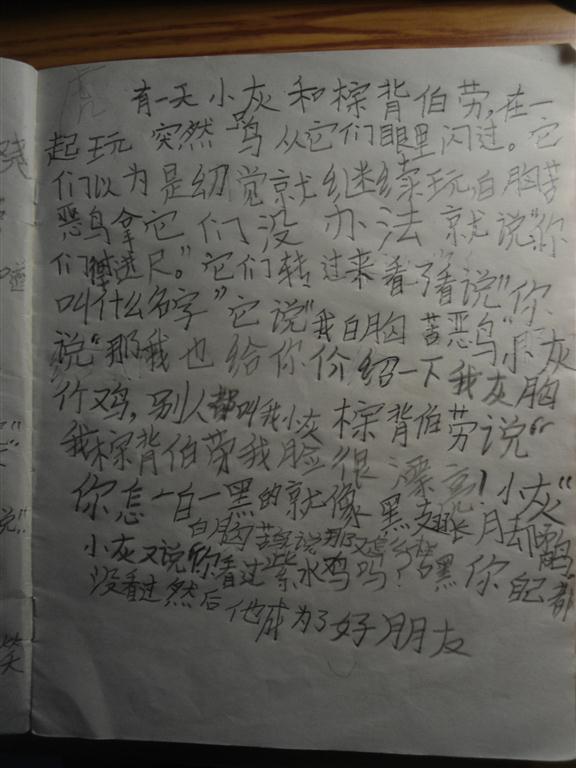 虎
有一天小灰和棕背伯劳,在一
起玩 突然 鸟从它们眼里闪过。它
们以为是幻觉就继续玩,白胸苦
恶鸟拿它们没办法就说“你
们 退尺。”它们转过来看了看说“你
叫什么名字”它说“我白胸苦恶鸟”小灰
说“那我也给你价绍一下我灰胸
竹鸡,别人都叫我小灰棕背伯劳说“
我棕背伯劳我脸很漂亮!小灰“
你怎一白一黑的就像黑翅长
白胸苦 说那
小灰又说你看过紫水鸡吗?嘿你
没看过然后他成为了好朋友